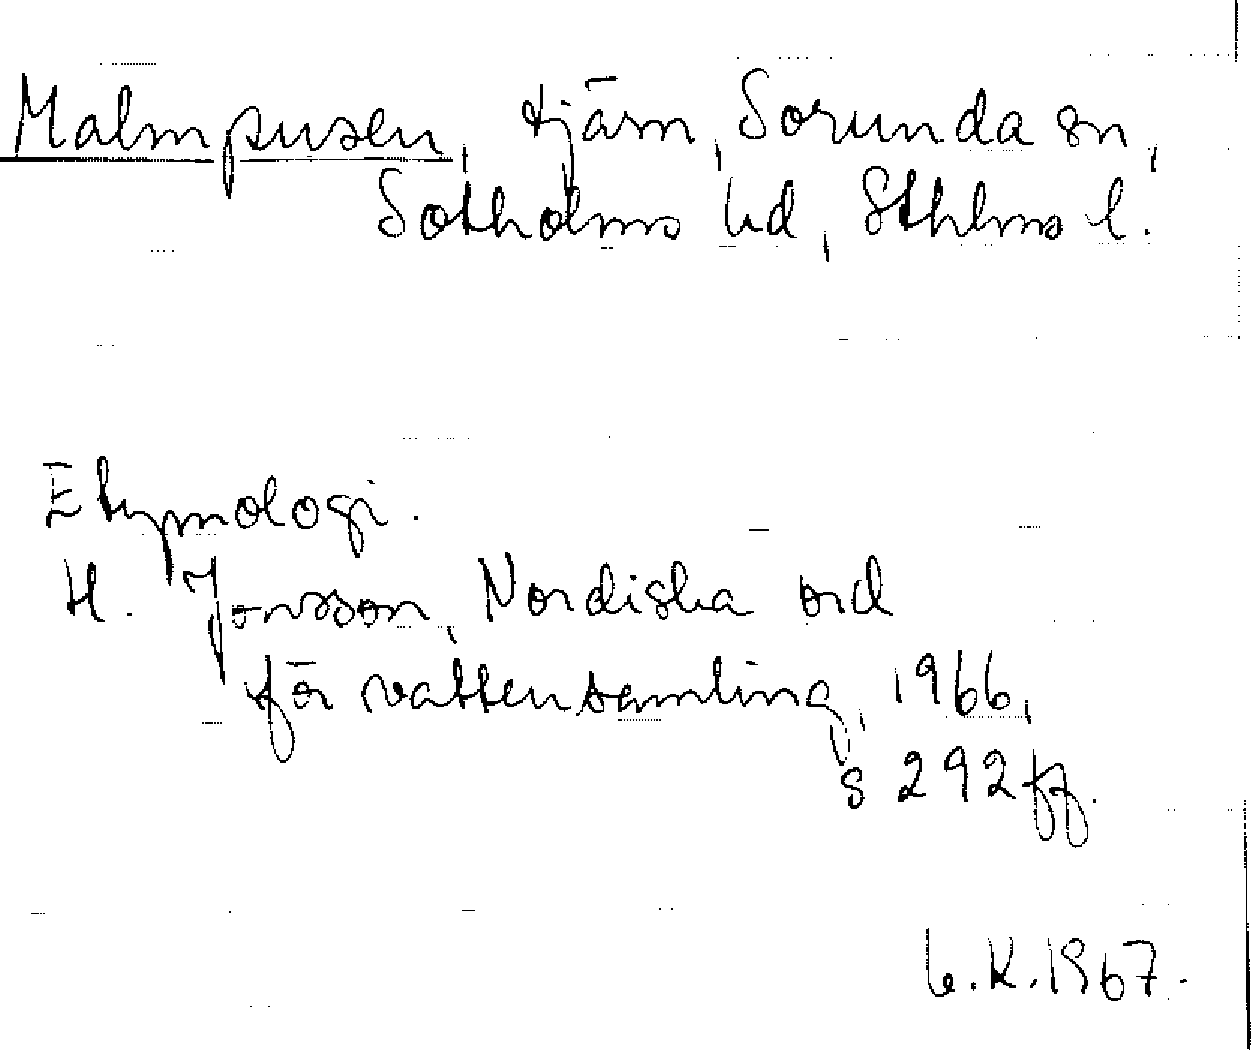 Malmpusen, tjärn, Sorunda sn,
Sotholms hd, Sthlms l.
Etymologi.
H. Jonsson, Nordiska ord
för vattensamling, 1966,
s 292 ff.
K. 1967.